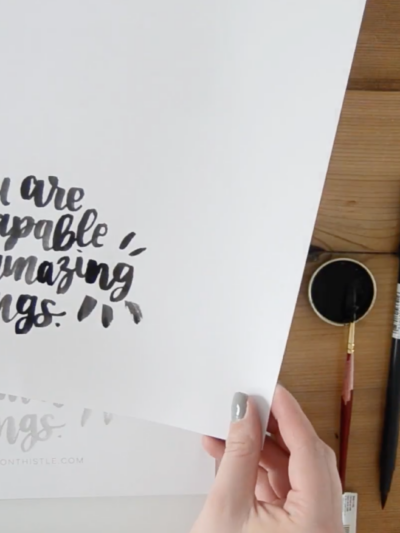 u are
apable
amazing
ngs.
ngs.
ONTHISTLY.COM